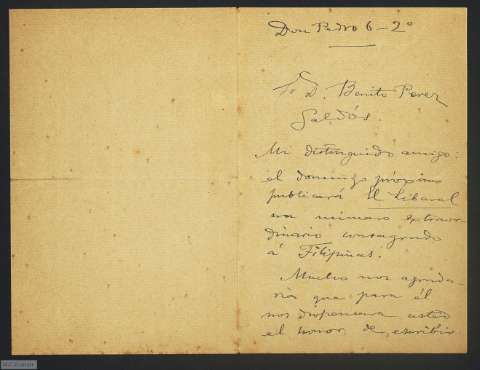 Don Pedro 6-2º
Sr D. Benito Perez
Galdós.
Mi distinguido amigo:
el domingo próximo
publicará El Liberal
un número extraor
dinario consagrado
á Filipinas.
Mucho nos agrada-
ria que para él
nos dispensara usted
el honor de escribir